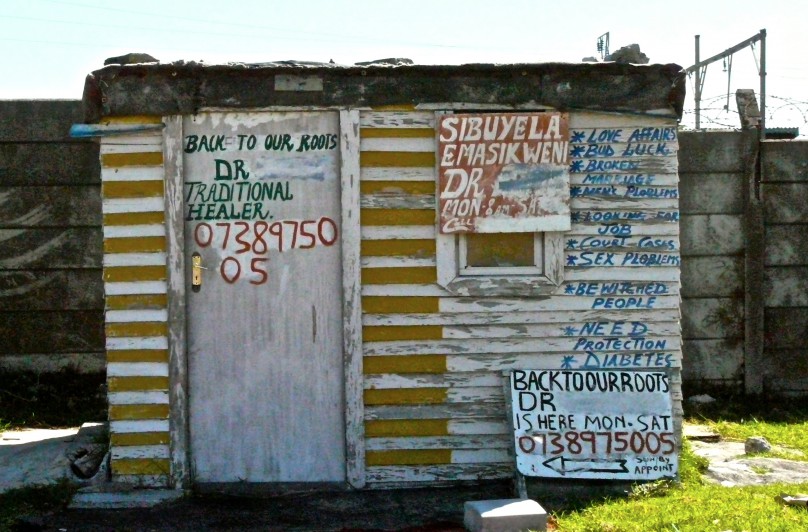 BACK TO OUR ROOTS
DR
TRADITIONAL
HEALER.
07389750
05
SIBUYELA
EMASIKWENI
DR
MON-8AM SAT
CALL
*LOVE AFFAIRS
*BUD LUCK
*BROKEN
MARRIAGE
*MEN'S PLOBLEMS
*LOOKING FOR
JOB
*COURT-CASES
*SEX PLOBLEMS
*BEWITCHED
PEOPLE
*NEED
PROTECTION
*DIABETES
BACKTOOURROOTS
DR
IS HERE MON-SAT
0738975005
BY
APPOINT